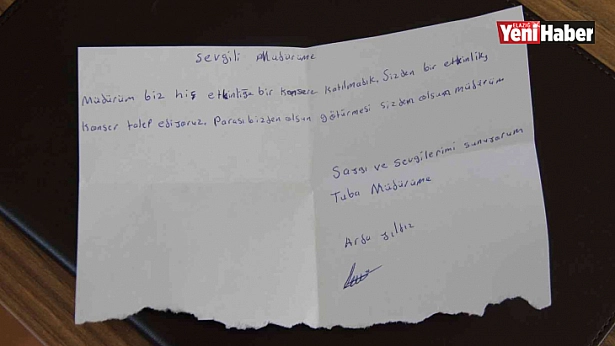 ELAZIĞ
YeniHaber
Sevgili Müdürüme
Müdürüm biz hiş etkinliğe bir konsere katılmadık. Sizden bir etkinlik,
konser talep ediyoruz. Parası bizden olsun götürmesi sizden olsun müdürüm
Saygı ve sevgilerimi sunuyorum
Tuba Müdürüme
Arda yıldız